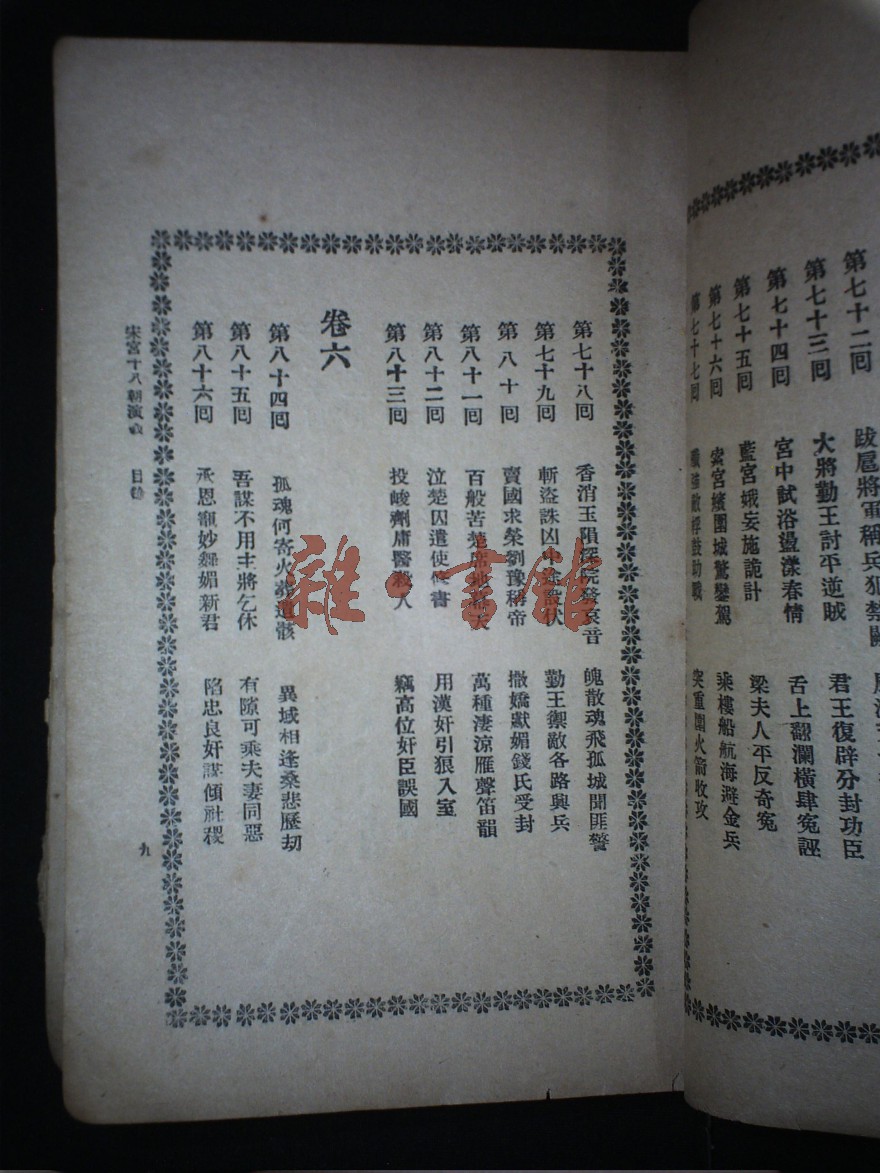 第七十二回　跋扈將軍稱兵犯禁闕
第七十三回　大將勤王討平逆賊　君王復辟分封功臣
第七十四回　宮中試浴盪漾春情　舌上翻瀾橫肆冤誣
第七十五回　藍宮娥妄施詭計　梁夫人平反奇冤
第七十六回　索宮嬪圍城驚鑾駕　乘樓船航海避金兵
第七十七回　敵桴鼓助戰　突重圍火箭收攻
第七十八回　香消玉隕深院發哀音　魄散魂飛孤城聞匪警
第七十九回　斬盜誅凶中途設伏　勤王禦敵各路興兵
第八十回　賣國求榮劉豫稱帝　撒嬌獻媚錢氏受封
第八十一回　百般苦楚席地幕天　萬種淒涼雁聲笛韻
第八十二回　泣楚囚遣使修書　用漢奸引狼入室
第八十三回　投峻劑庸醫殺人　竊高位奸臣誤國
卷六
第八十四回　孤魂何寄火葬遺骸　異域相逢桑悲歷劫
第八十五回　吾謀不用主將乞休　有隙可乘夫妻同惡
第八十六回　承恩寵妙舞媚新君　陷忠良奸謀傾社稷
宋宮十八朝演義　目錄
九
雜·書館